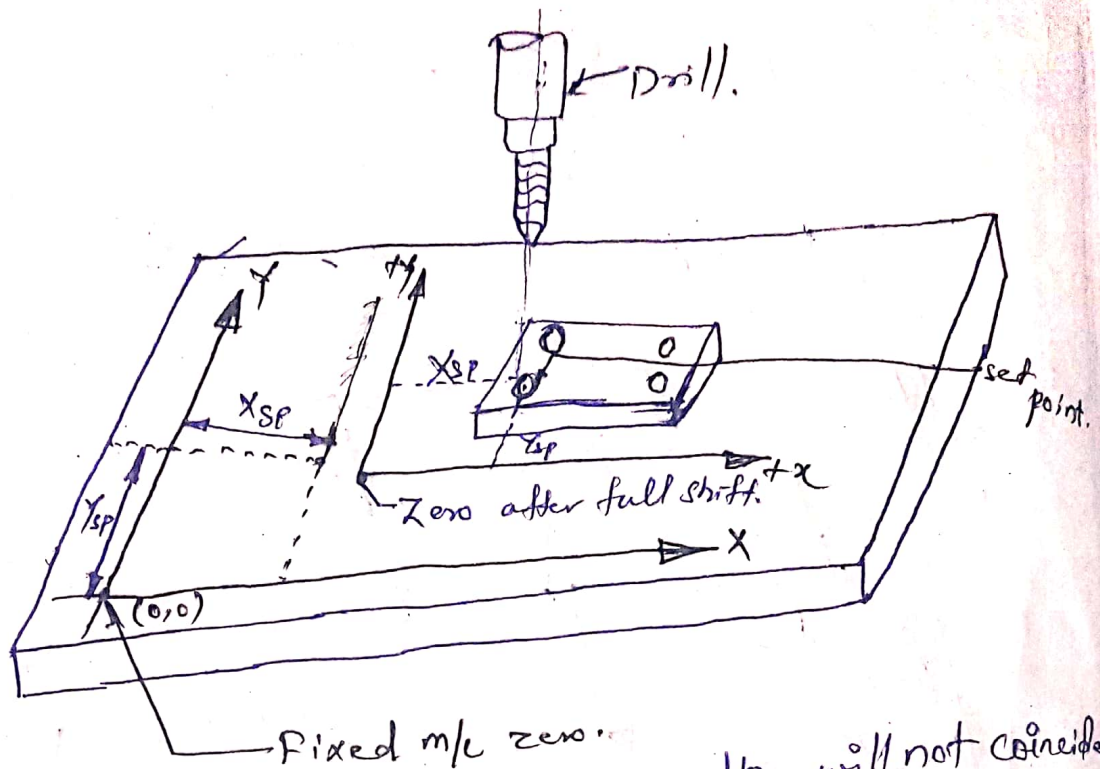 Drill.
Y
+Y
XSP
XSP
set
point.
YSP
YSP
+x
Zero after full shift.
X
(0,0)
Fixed m/c zero.
will not coincide